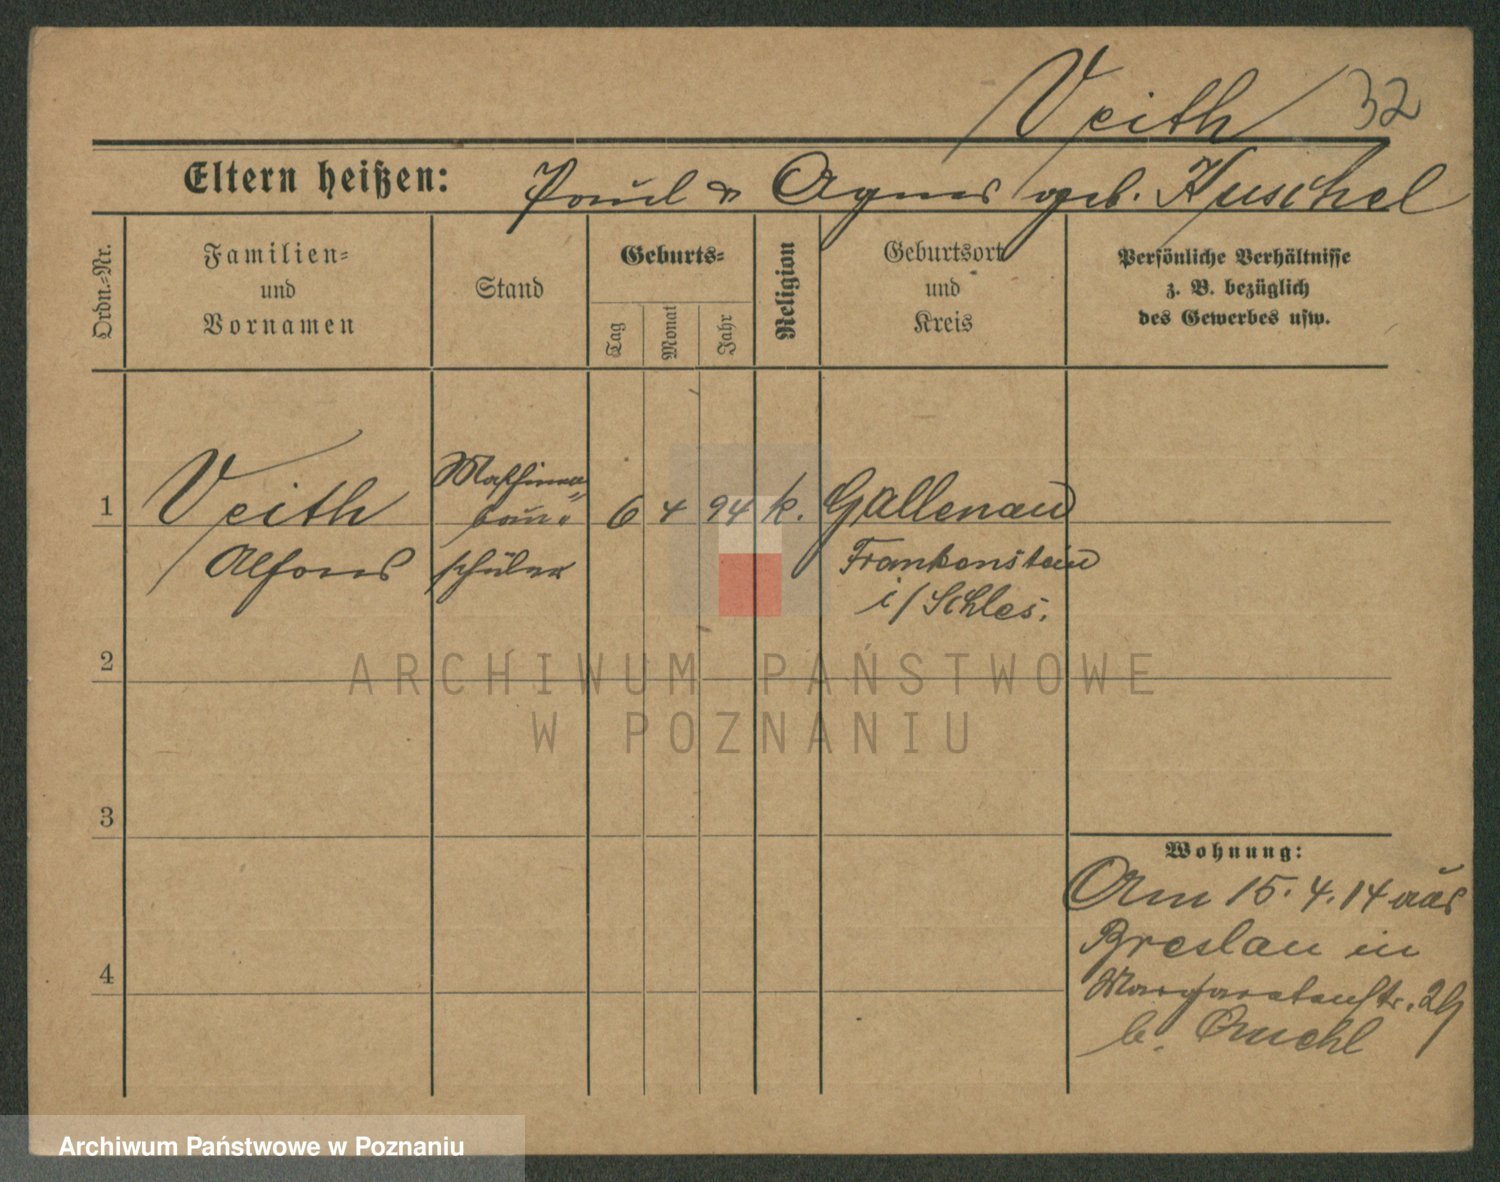 Veith 32
Eltern heißen: Paul & Agnes geb. Kuschel
Ordn.-Nr.
Familien-
und
Vornamen
Stand
Geburts-
Tag
Monat
Jahr
Religion
Geburtsort
und
Kreis
Persönliche Verhältnisse
z. B. bezüglich
des Gewerbes usw.
1 Veith Maschinen 6 4 94 k. Gallenau
bau-
Alfons schüler Frankenstein
i/Schles.
2
3
4
Wohnung:
Am 15. 4. 14 aus
Breslau in
Margaretenstr. 29
b.
ARCHIWUM PAŃSTWOWE
W POZNANIU
Archiwum Państwowe w Poznaniu